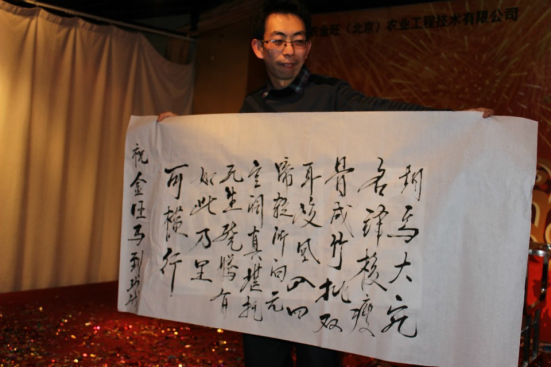 （北京）农业工程技术有限公司
胡马大宛
名锋棱瘦
骨成竹批双
耳峻风入四
蹄轻所向无
空阔真堪托
死生骁腾有
如此万里
可横行
祝金旺马到